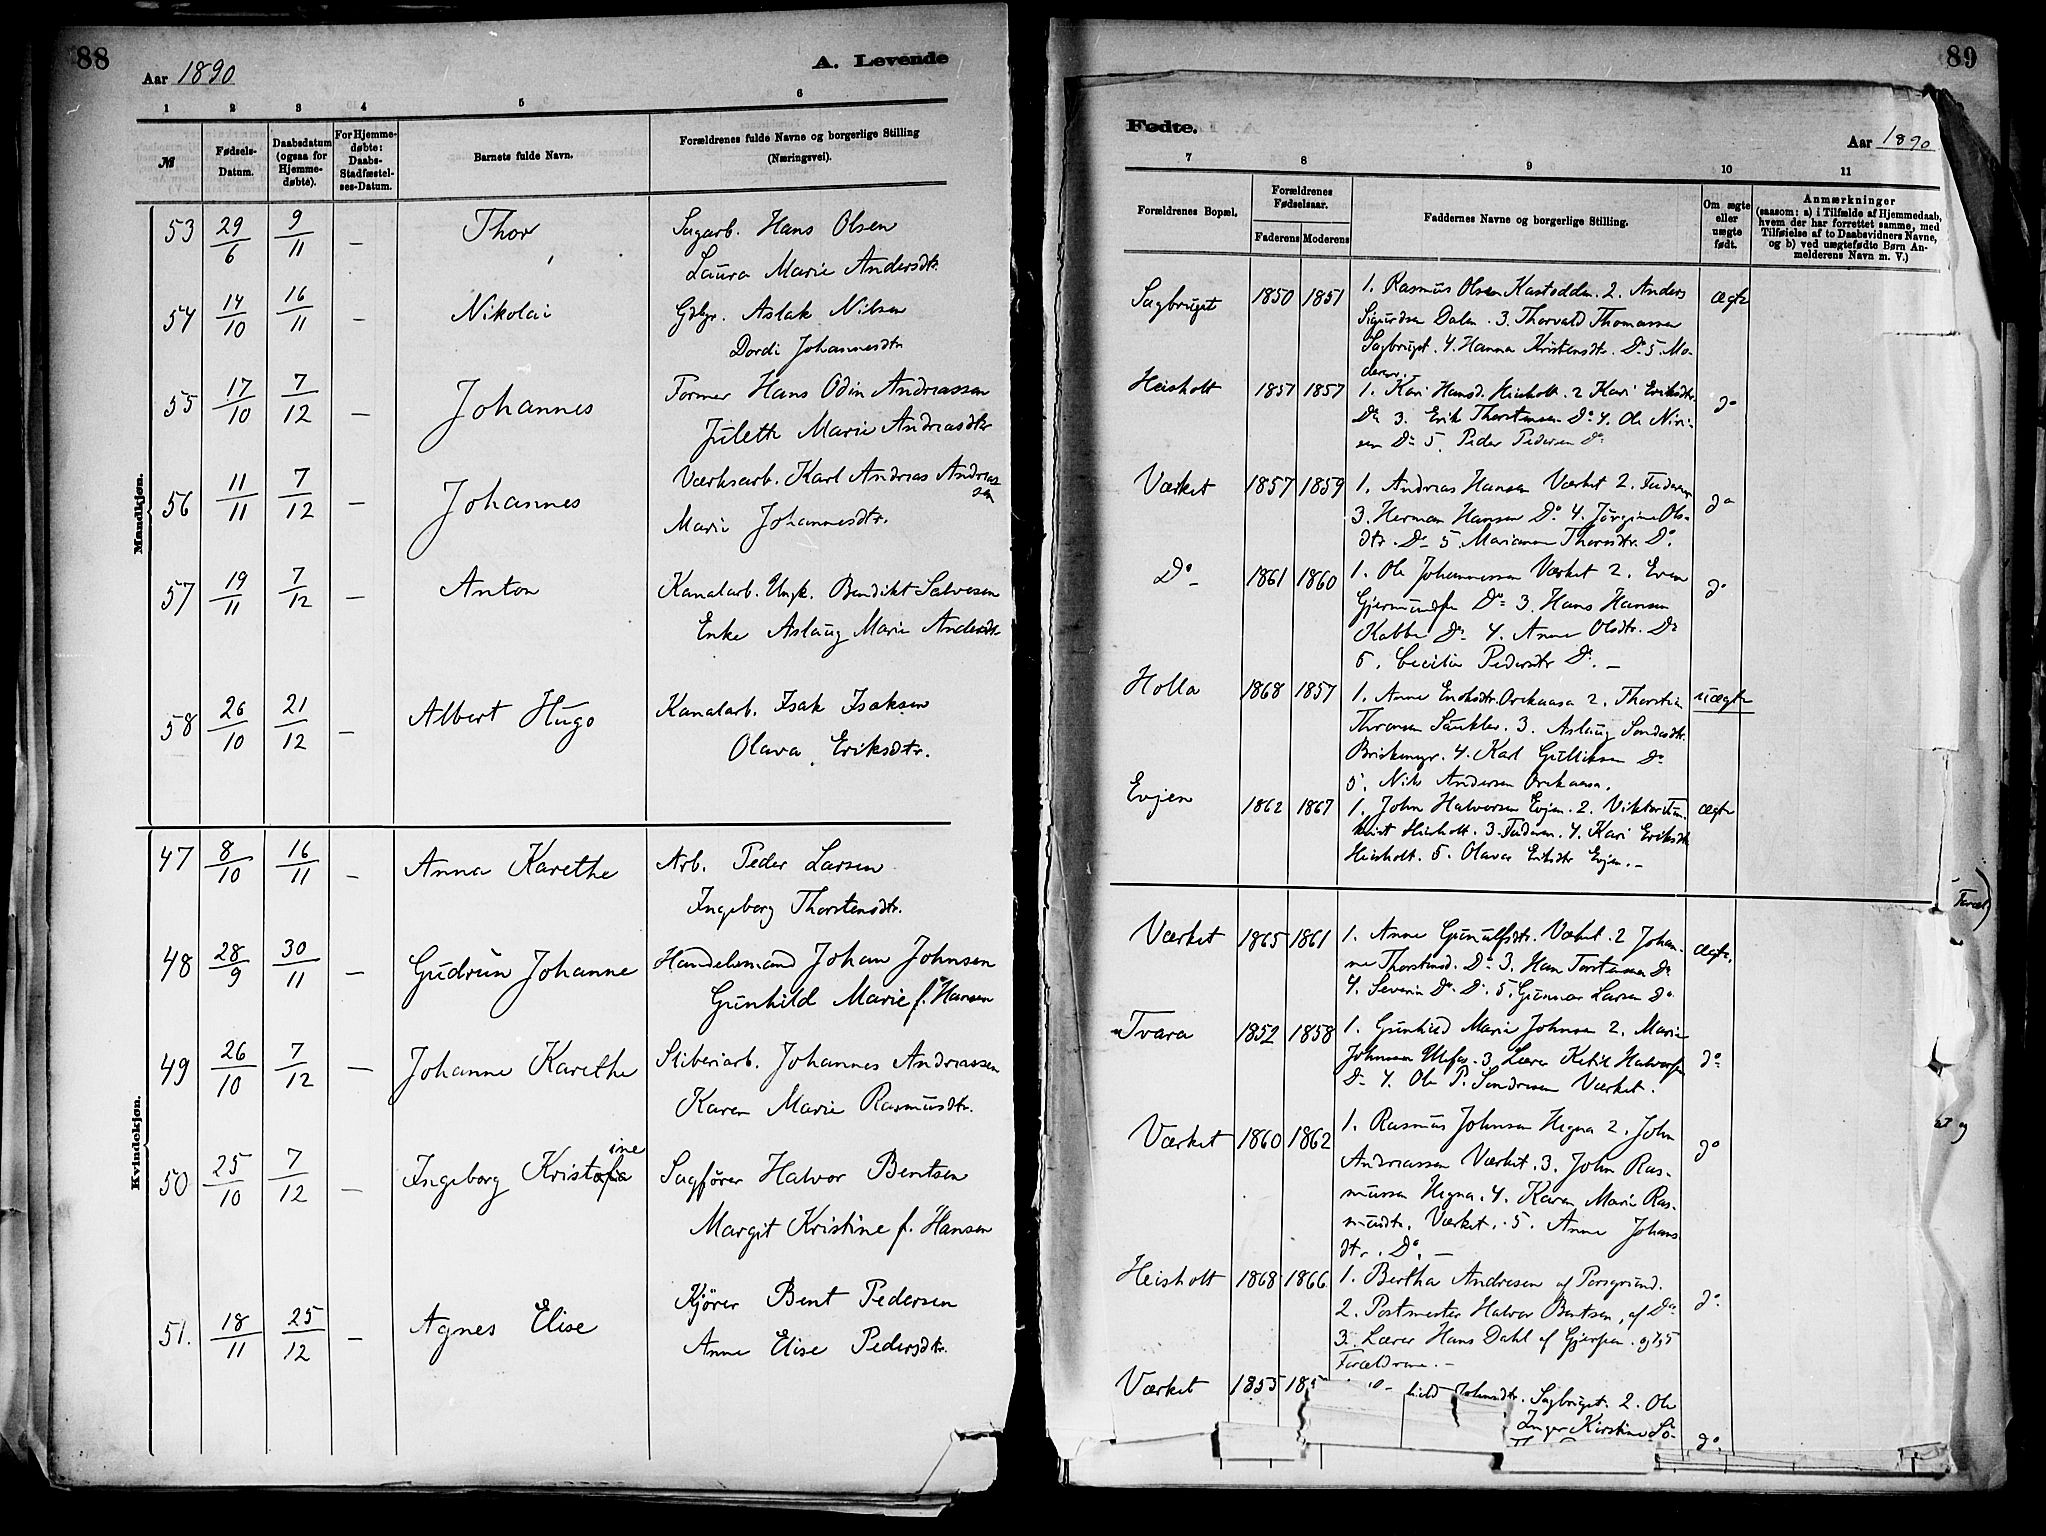 88
Aar 1890
A. Levende
1 2 3 4 5 6
№
Fødsels-
Datum.
Daabsdatum
(ogsaa for
Hjemme-
døbte).
For Hjemme-
døbte:
Daabs-
Stadfæstel-
ses-Datum.
Barnets fulde Navn.
Forældrenes fulde Navne og borgerlige Stilling
(Næringsvei).
Mandkjøn.
53 29/6 9/11 – Thor Sagarb. Hans Olsen
Laura Marie Andersdtr.
54 14/10 16/11 – Nikolai Gdbgr. Aslak Nilsen
Dordi Johannesdtr
55 17/10 7/12 – Johannes Former Hans Odin Andreassen
Juleth Marie Andreasdtr
56 11/11 7/12 – Johannes Værksarb. Karl Andreas Andreas
sen
Marie Johannesdtr.
57 19/11 7/12 – Anton Kanalarb. Ungk. Bendikt Salvesen
Enke Aslaug Marie Andersdtr
58 26/10 21/12 – Albert Hugo Kanalarb. Isak Isaksen
Olava Eriksdtr.
Kvindekjøn.
47 8/10 16/11 – Anna Karethe Arb. Peder Larsen
Ingeborg Thorstensdtr.
48 28/9 30/11 – Gudrun Johanne Handelsmand Johan Johnsen
Gunhild Marie f. Hansen
49 26/10 7/12 – Johanne Karethe Sliberiarb. Johannes Andreassen
Karen Marie Rasmusdtr.
ine
50 25/10 7/12 – Ingeborg Kristofa Sagfører Halvor Bentsen
Margit Kristine f. Hansen
51. 18/11 25/12 – Agnes Elise Kjører Bent Pedersen
Anne Elise Pedersdtr.
89
Fødte.
Aar 1890
7 8 9 10 11
Forældrenes Bopæl.
Forældrenes
Fødselsaar.
Faderens Moderens
Faddernes Navne og borgerlige Stilling.
Om ægte
eller
uægte
født.
Anmærkninger
(saasom: a) i Tilfælde af Hjemmedaab,
hvem der har forrettet samme, med
Tilføielse af to Daabsvidners Navne,
og b) ved uægtefødte Børn An-
melderens Navn m. V.)
Sagbruget 1850 1851 1. Rasmus Olsen Kastodden. 2. Anders ægte
Sigurdsen Dalen. 3. Thorvald Thomassen
Sagbruget. 4. Hanna Kristensdtr. Do 5 Mo-
deren.
Heisholt 1851 1857 1. Kari Hansd. Heisholt. 2 Kari Eriksdtr. do
Do 3. Erik Thorstensen Do 4. Ole Niri-
sen Do 5. Peder Pedersen Do
Værket 1857 1859 1. Andreas Hansen Værket 2. Faderen do
3. Herman Hansen Do 4. Jørgine Ols-
dtr. Do 5. Marianne Thoresdtr. Do.
Do 1861 1860 1. Ole Johannessen Værket 2. Even do
Gjermundsen Do 3. Hans Hansen
Kabbe Do 4. Anne Olsdtr. Do
5. Cecilie Pedersdtr Do. –
Holla 1868 1857 1. Anne Eriksdtr Orekaasa 2. Thorstein uægte
3. Aslaug Sondredtr.
4. Karl Gulliksen Do
5. Nils Andersen Orekaasa.
Evjen 1862 1867 1. John Halvorsen Evjen. 2. ægte
Heisholt. 3. Faderen. 4. Kari Eriksdtr
Heisholt. 5. Olava Eriksdtr Evjen. –
Værket 1865 1861 1. Anne Gunulfsdtr. Værket. 2 Johan- ægte.
ne Thorstensd. Do 3. Hans Torstensen Do
4. Severin Do. Do. 5. Gunnar Larsen Do
Tvara 1852 1858 1. Gunhild Marie Johnsen 2. Marie do
Johnsen Ulefos. 3. Lærer Ketil Halvorsen
Do 4. Ole P. Sondresen Værket.
Værket 1860 1862 1. Rasmus Johnsen Hegna 2. John do
Andreassen Værket. 3. John Ras-
mussen Hegna. 4. Karen Marie Ras-
musdtr. Værket. 5. Anne Johans
dtr. Do. –
Heisholt 1868 1866 1. Bertha Andresen af Porsgrund. do.
2. Postmester Halvor Bentsen, af Do
3. Lærer Hans Dahl af Gjerpen. og 4, 5
Forældrene. –
Værket 1855 Johnsdtr. Sagbruget. 2. Ole
Inger Kirstine So-
do.